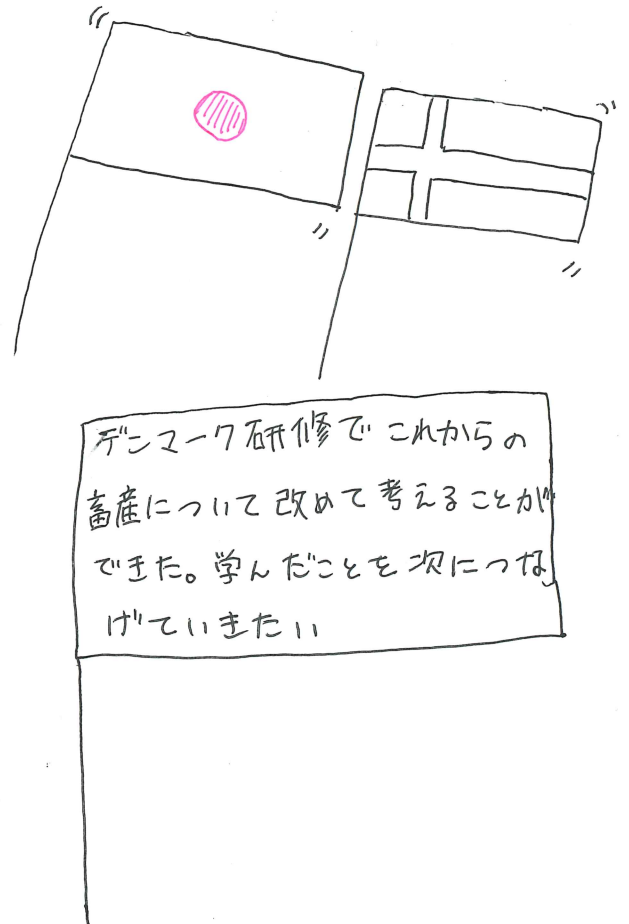 デンマーク研修でこれからの
畜産について改めて考えることが
できた。学んだことを次につな
げていきたい